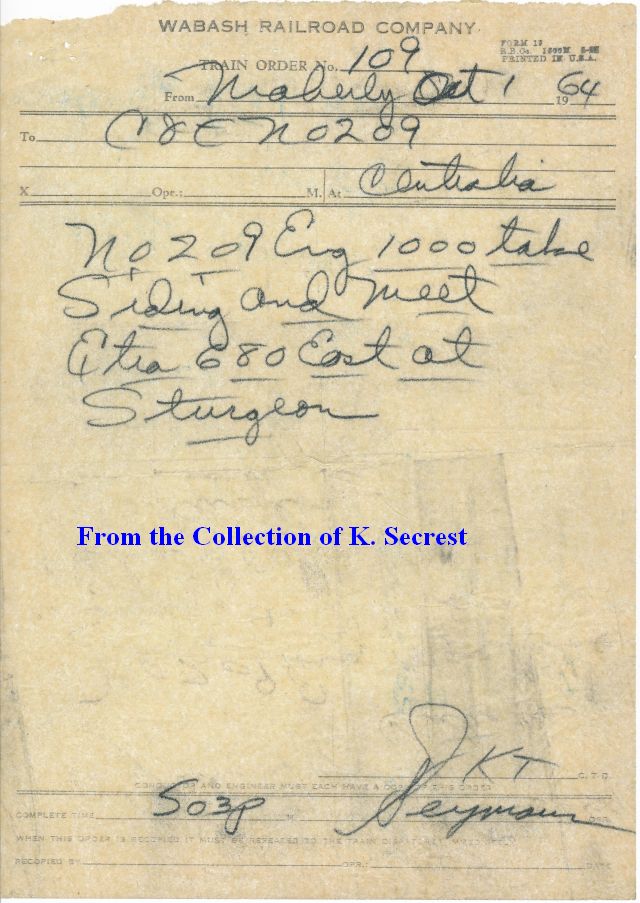 WABASH RAILROAD COMPANY
FORM 19
PRINTED IN U.S.A.
TRAIN ORDER No. 109
From Moberly Oct 1 1964
To C&E No 209
X Opr.: M. At Centralia
No 209 Eng 1000 take
Siding and Meet
Etra 680 East at
Sturgeon
From the Collection of K. Secrest
JKT C.T.D.
CONDUCTOR AND ENGINEER MUST EACH HAVE A COPY OF THIS ORDER
COMPLETE TIME 503p M Seymour OPR.
WHEN THIS ORDER IS RECOPIED IT MUST BE REPEATED TO THE TRAIN DISPATCHER
RECOPIED BY OPR.: DATE